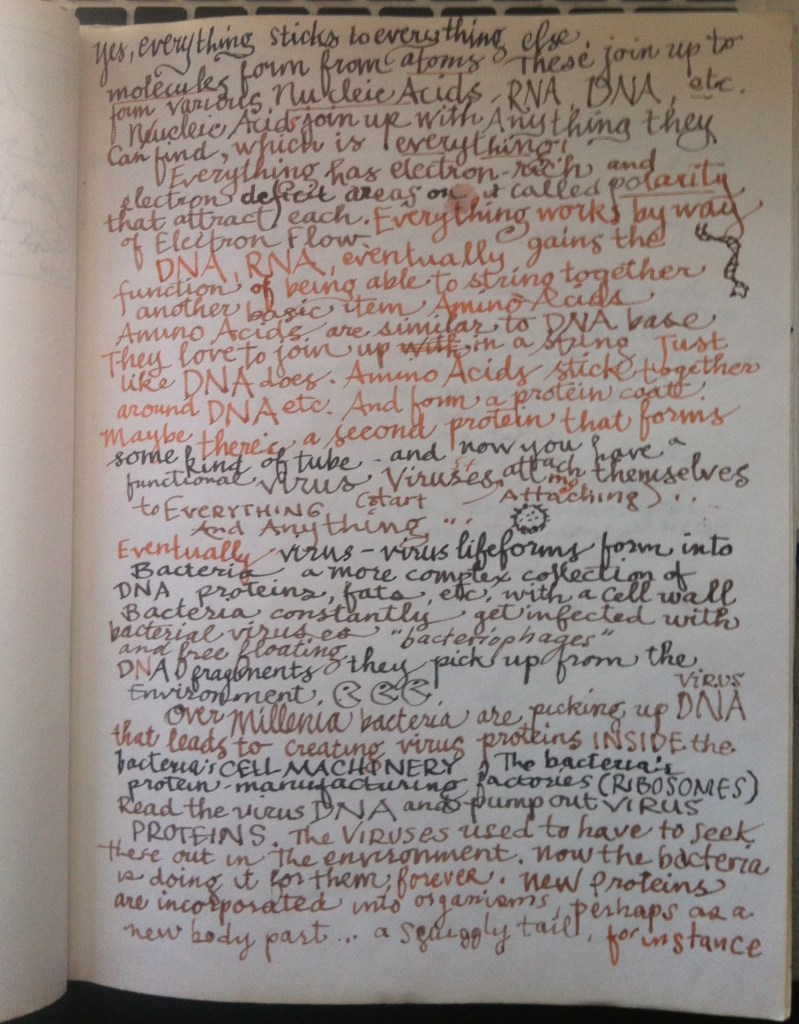 yes, everything sticks to everything else.
molecules form from atoms These join up to
form various Nucleic Acids - RNA, DNA, etc.
Nucleic Acids join up with Anything they
can find, which is everything!
Everything has electron-rich and
electron deficit areas on it called polarity
that attract each. Everything works by way
of Electron Flow.
DNA, RNA, eventually gains the
function of being able to string together
another basic item Amino Acids
Amino Acids are similar to DNA base
They love to join up with in a string Just
like DNA does. Amino Acids stick together
around DNA etc. And form a protein coat.
Maybe there's a second protein that forms
some kind of tube - and now you have a
functional virus Viruses attach themselves
to EVERYTHING (start Attaching)..
And Anything "..
Eventually virus-virus lifeforms form into
Bacteria a more complex collection of
DNA proteins, fats, etc, with a cell wall
Bacteria constantly get infected with
bacterial viruses "bacteriophages"
and free floating
DNA fragments they pick up from the
Environment.
Over Millenia bacteria are picking up VIRUS DNA
that leads to creating virus proteins INSIDE the
bacteria's CELL MACHINERY. The bacteria's
protein-manufacturing factories (RIBOSOMES)
Read the virus DNA and pump out VIRUS
PROTEINS. The VIRUSES used to have to seek
these out in The environment. Now the bacteria
is doing it for them, forever. New Proteins
are incorporated into organisms, perhaps as a
new body part... a squiggly tail, for instance